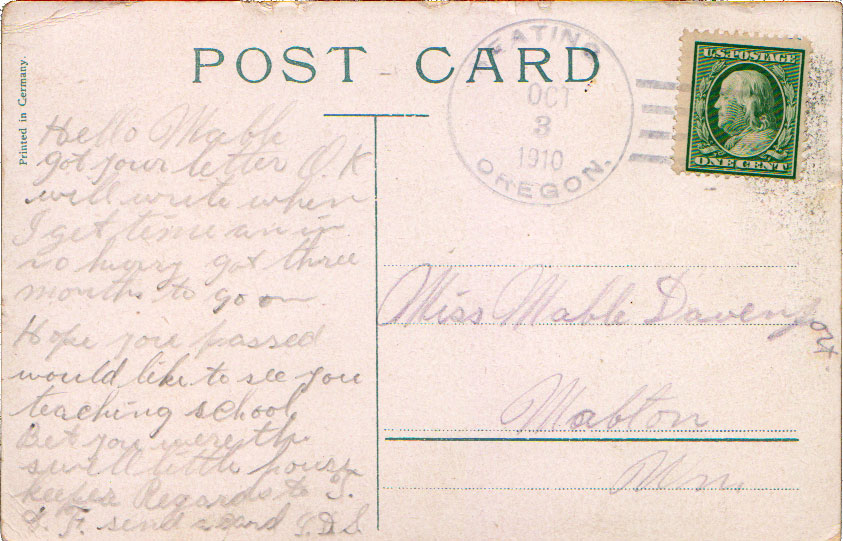 POST CARD
Printed in Germany.
KEATING
OCT
3
1910
OREGON.
U.S. POSTAGE
ONE CENT
Hello Mable
got your letter O.K.
will write when
I get time am in
no hurry got three
months to go on
Hope you passed
would like to see you
teaching school
Bet you were the
swell little house
keeper Regards to
F. send a card
Miss Mable Davenport
Mabton
Wn.